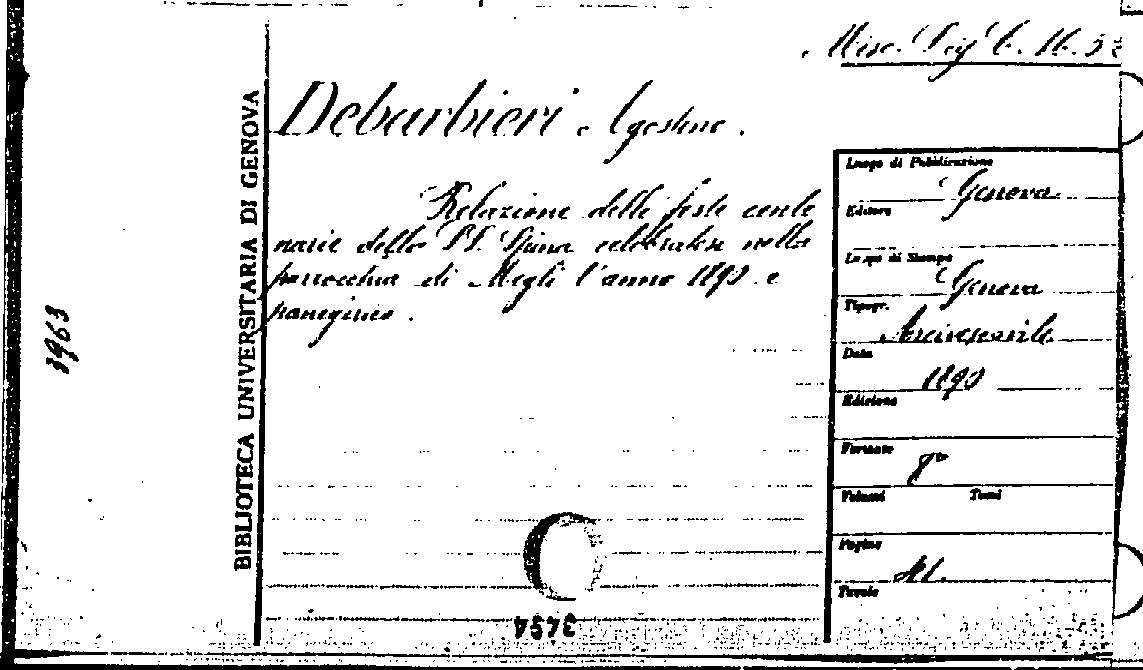 Misc. Lig. C. 16. 32
Debarbieri Agostino.
Relazione delle feste cente
narie della SS. Spina celebratesi nella
parrocchia di Megli l'anno 1890 e
panegirico.
BIBLIOTECA UNIVERSITARIA DI GENOVA
1963
Luogo di Pubblicazione
Genova
Editore
Luogo di Stampa
Genova
Tipogr.
Arcivescovile
Data
1890
Edizione
Formato
8º
Volumi Tomi
Pagine
Tavole
3454